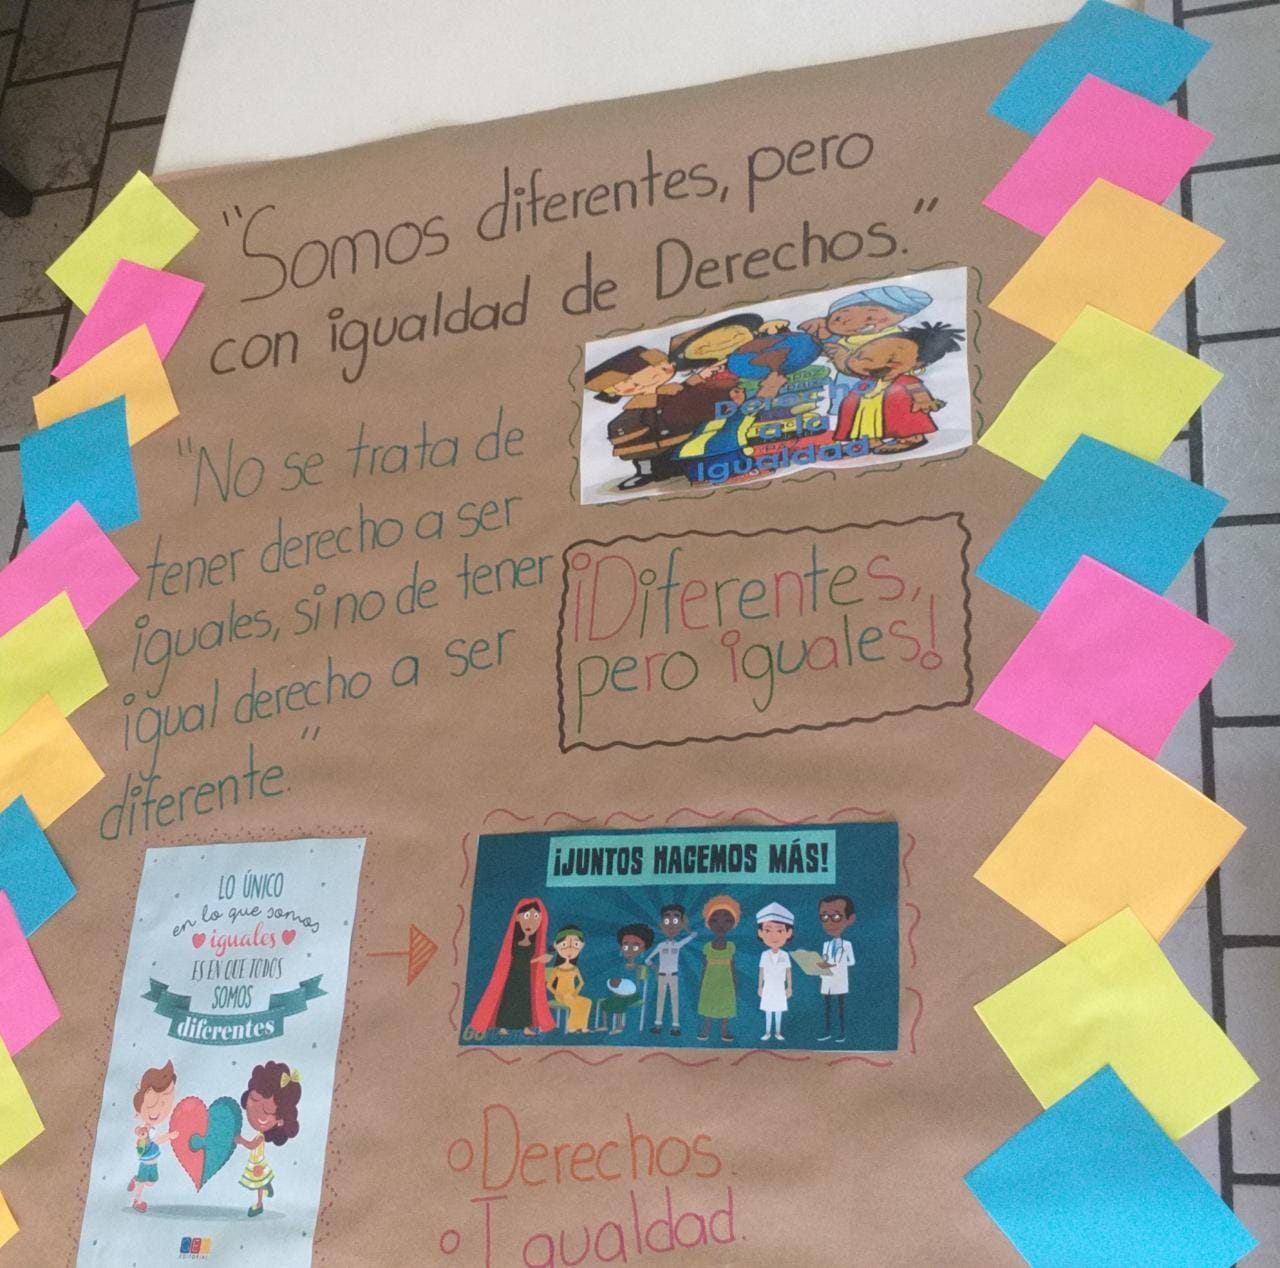 "Somos diferentes, pero
con igualdad de Derechos."
Derecho
a la
Igualdad
"No se trata de
tener derecho a ser
iguales, si no de tener
igual derecho a ser
diferente."
¡Diferentes,
pero iguales!
LO ÚNICO
en lo que somos
iguales
ES EN QUE TODOS
SOMOS
diferentes
GEU
EDITORIAL
¡JUNTOS HACEMOS MÁS!
Derechos.
Igualdad.